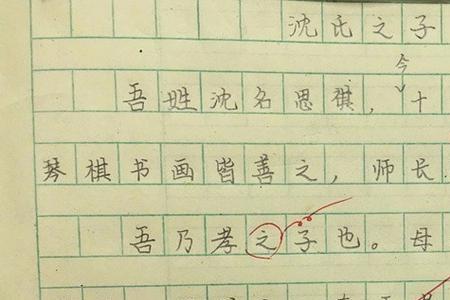 沈氏之子
今
吾姓沈名思祺,十
琴棋书画皆善之,师长
吾乃孝之子也。母